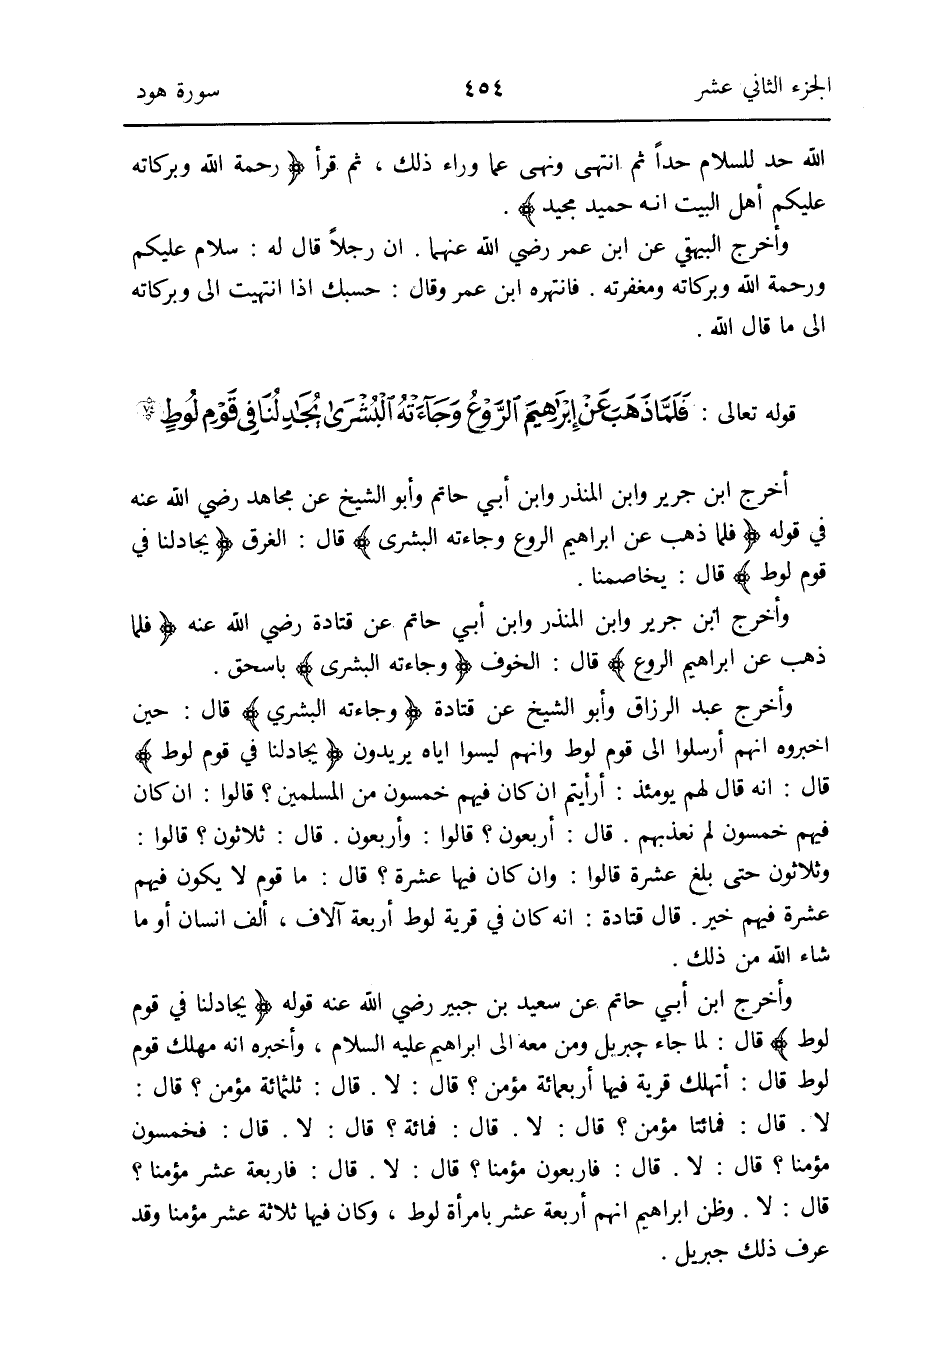 الجزء الثاني عشر ٤٥٤ سورة هود
الله حد للسلام حداً ثم انتهى ونهى عما وراء ذلك ، ثم قرأ ﴿ رحمة الله وبركاته
عليكم أهل البيت انه حميد مجيد ﴾ .
وأخرج البيهقي عن ابن عمر رضي الله عنهما . ان رجلاً قال له : سلام عليكم
ورحمة الله وبركاته ومغفرته . فانتهره ابن عمر وقال : حسبك اذا انتهيت الى وبركاته
الى ما قال الله .
قوله تعالى : فَلَمَّا ذَهَبَ عَنْ إِبْرَاهِيمَ ٱلرَّوْعُ وَجَآءَتْهُ ٱلْبُشْرَىٰ يُجَادِلُنَا فِى قَوْمِ لُوطٍ ٧٤
أخرج ابن جرير وابن المنذر وابن أبي حاتم وأبو الشيخ عن مجاهد رضي الله عنه
في قوله ﴿ فلما ذهب عن ابراهيم الروع وجاءته البشرى ﴾ قال : الغرق ﴿ يجادلنا في
قوم لوط ﴾ قال : يخاصمنا .
وأخرج ابن جرير وابن المنذر وابن أبي حاتم عن قتادة رضي الله عنه ﴿ فلما
ذهب عن ابراهيم الروع ﴾ قال : الخوف ﴿ وجاءته البشرى ﴾ باسحق .
وأخرج عبد الرزاق وأبو الشيخ عن قتادة ﴿ وجاءته البشري ﴾ قال : حين
اخبروه انهم أرسلوا الى قوم لوط وانهم ليسوا اياه يريدون ﴿ يجادلنا في قوم لوط ﴾
قال : انه قال لهم يومئذ : أرأيتم ان كان فيهم خمسون من المسلمين ؟ قالوا : ان كان
فيهم خمسون لم نعذبهم . قال : أربعون ؟ قالوا : وأربعون . قال : ثلاثون ؟ قالوا :
وثلاثون حتى بلغ عشرة قالوا : وان كان فيها عشرة ؟ قال : ما قوم لا يكون فيهم
عشرة فيهم خير . قال قتادة : انه كان في قرية لوط أربعة آلاف ، ألف انسان أو ما
شاء الله من ذلك .
وأخرج ابن أبي حاتم عن سعيد بن جبير رضي الله عنه قوله ﴿ يجادلنا في قوم
لوط ﴾ قال : لما جاء جبريل ومن معه الى ابراهيم عليه السلام ، وأخبره انه مهلك قوم
لوط قال : أتهلك قرية فيها أربعمائة مؤمن ؟ قال : لا . قال : ثلثمائة مؤمن ؟ قال :
لا . قال : فمائتا مؤمن ؟ قال : لا . قال : فمائة ؟ قال : لا . قال : فخمسون
مؤمنا ؟ قال : لا . قال : فاربعون مؤمنا ؟ قال : لا . قال : فاربعة عشر مؤمنا ؟
قال : لا . وظن ابراهيم انهم أربعة عشر بامرأة لوط ، وكان فيها ثلاثة عشر مؤمنا وقد
عرف ذلك جبريل .